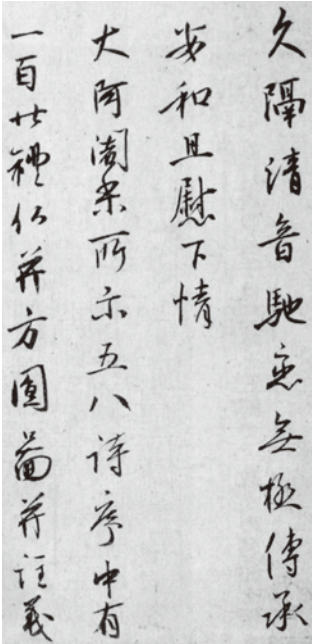 久隔清音馳恋無極傳承
安和且慰下情
大阿闍梨所示五八詩序中有
一百廿禮仏并方圓圖并註義